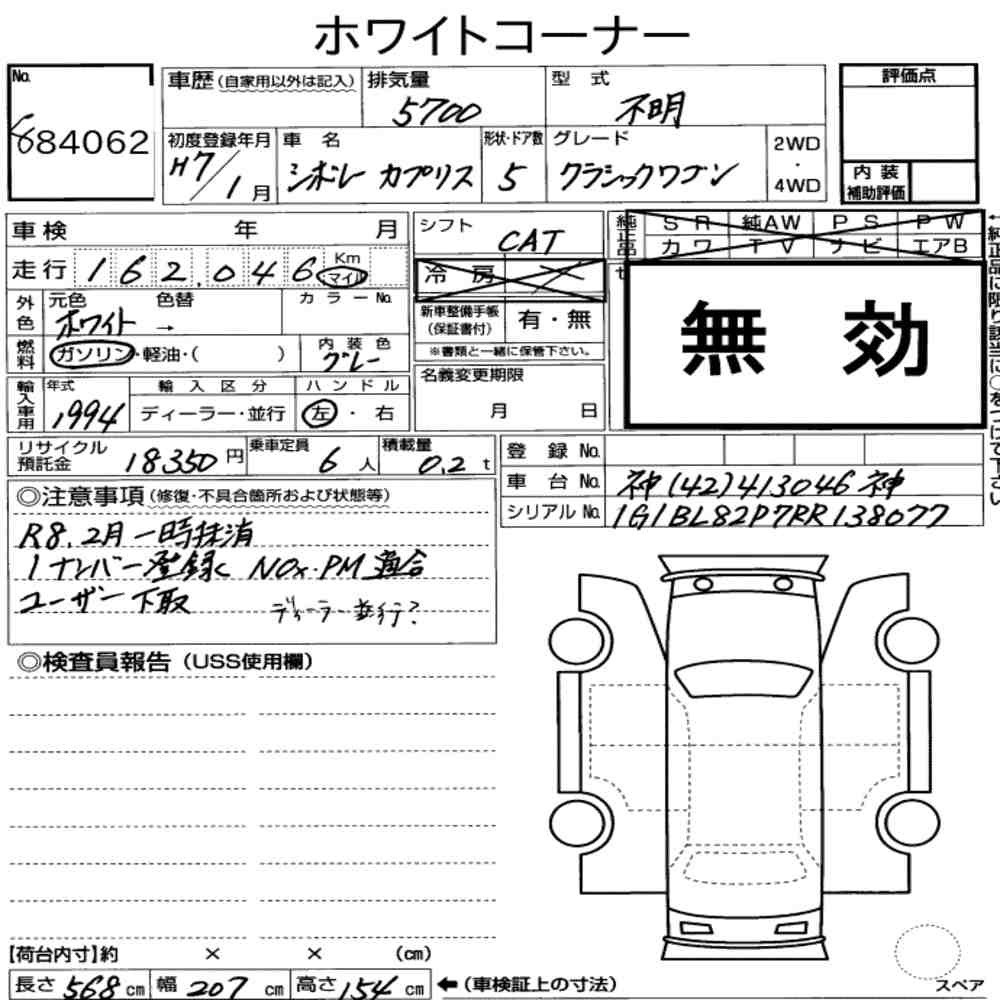 ホワイトコーナー
No.
684062
車歴(自家用以外は記入)
排気量
5700
型 式
不明
評価点
初度登録年月
H7/1月
車 名
シボレー カプリス
形状・ドア数
5
グレード
クラシックワゴン
2WD
・
4WD
内 装
補助評価
車検 年 月
シフト
CAT
純正品
SR 純AW PS PW
カワ TV ナビ エアB
走行 162,046 Km マイル
冷 房
外色
元色
ホワイト
色替
→
カラーNo.
新車整備手帳
(保証書付)
有・無
※書類と一緒に保管下さい。
無 効
燃料
ガソリン・軽油・( )
内 装 色
グレー
名義変更期限
月 日
輸入車用
年式
1994
輸入区分
ディーラー・並行
ハンドル
左・右
リサイクル
預託金
18350円
乗車定員
6人
積載量
0.2t
登 録 No.
車 台 No. 神(42)413046神
シリアル No. 1G1BL82P7RR138077
◎注意事項(修復・不具合箇所および状態等)
R8.2月一時抹消
1ナンバー登録 NOx・PM適合
ユーザー下取
ディーラー並行?
◎検査員報告(USS使用欄)
【荷台内寸】約 × × (cm)
長さ 568cm 幅 207cm 高さ 154cm ←(車検証上の寸法)
スペア